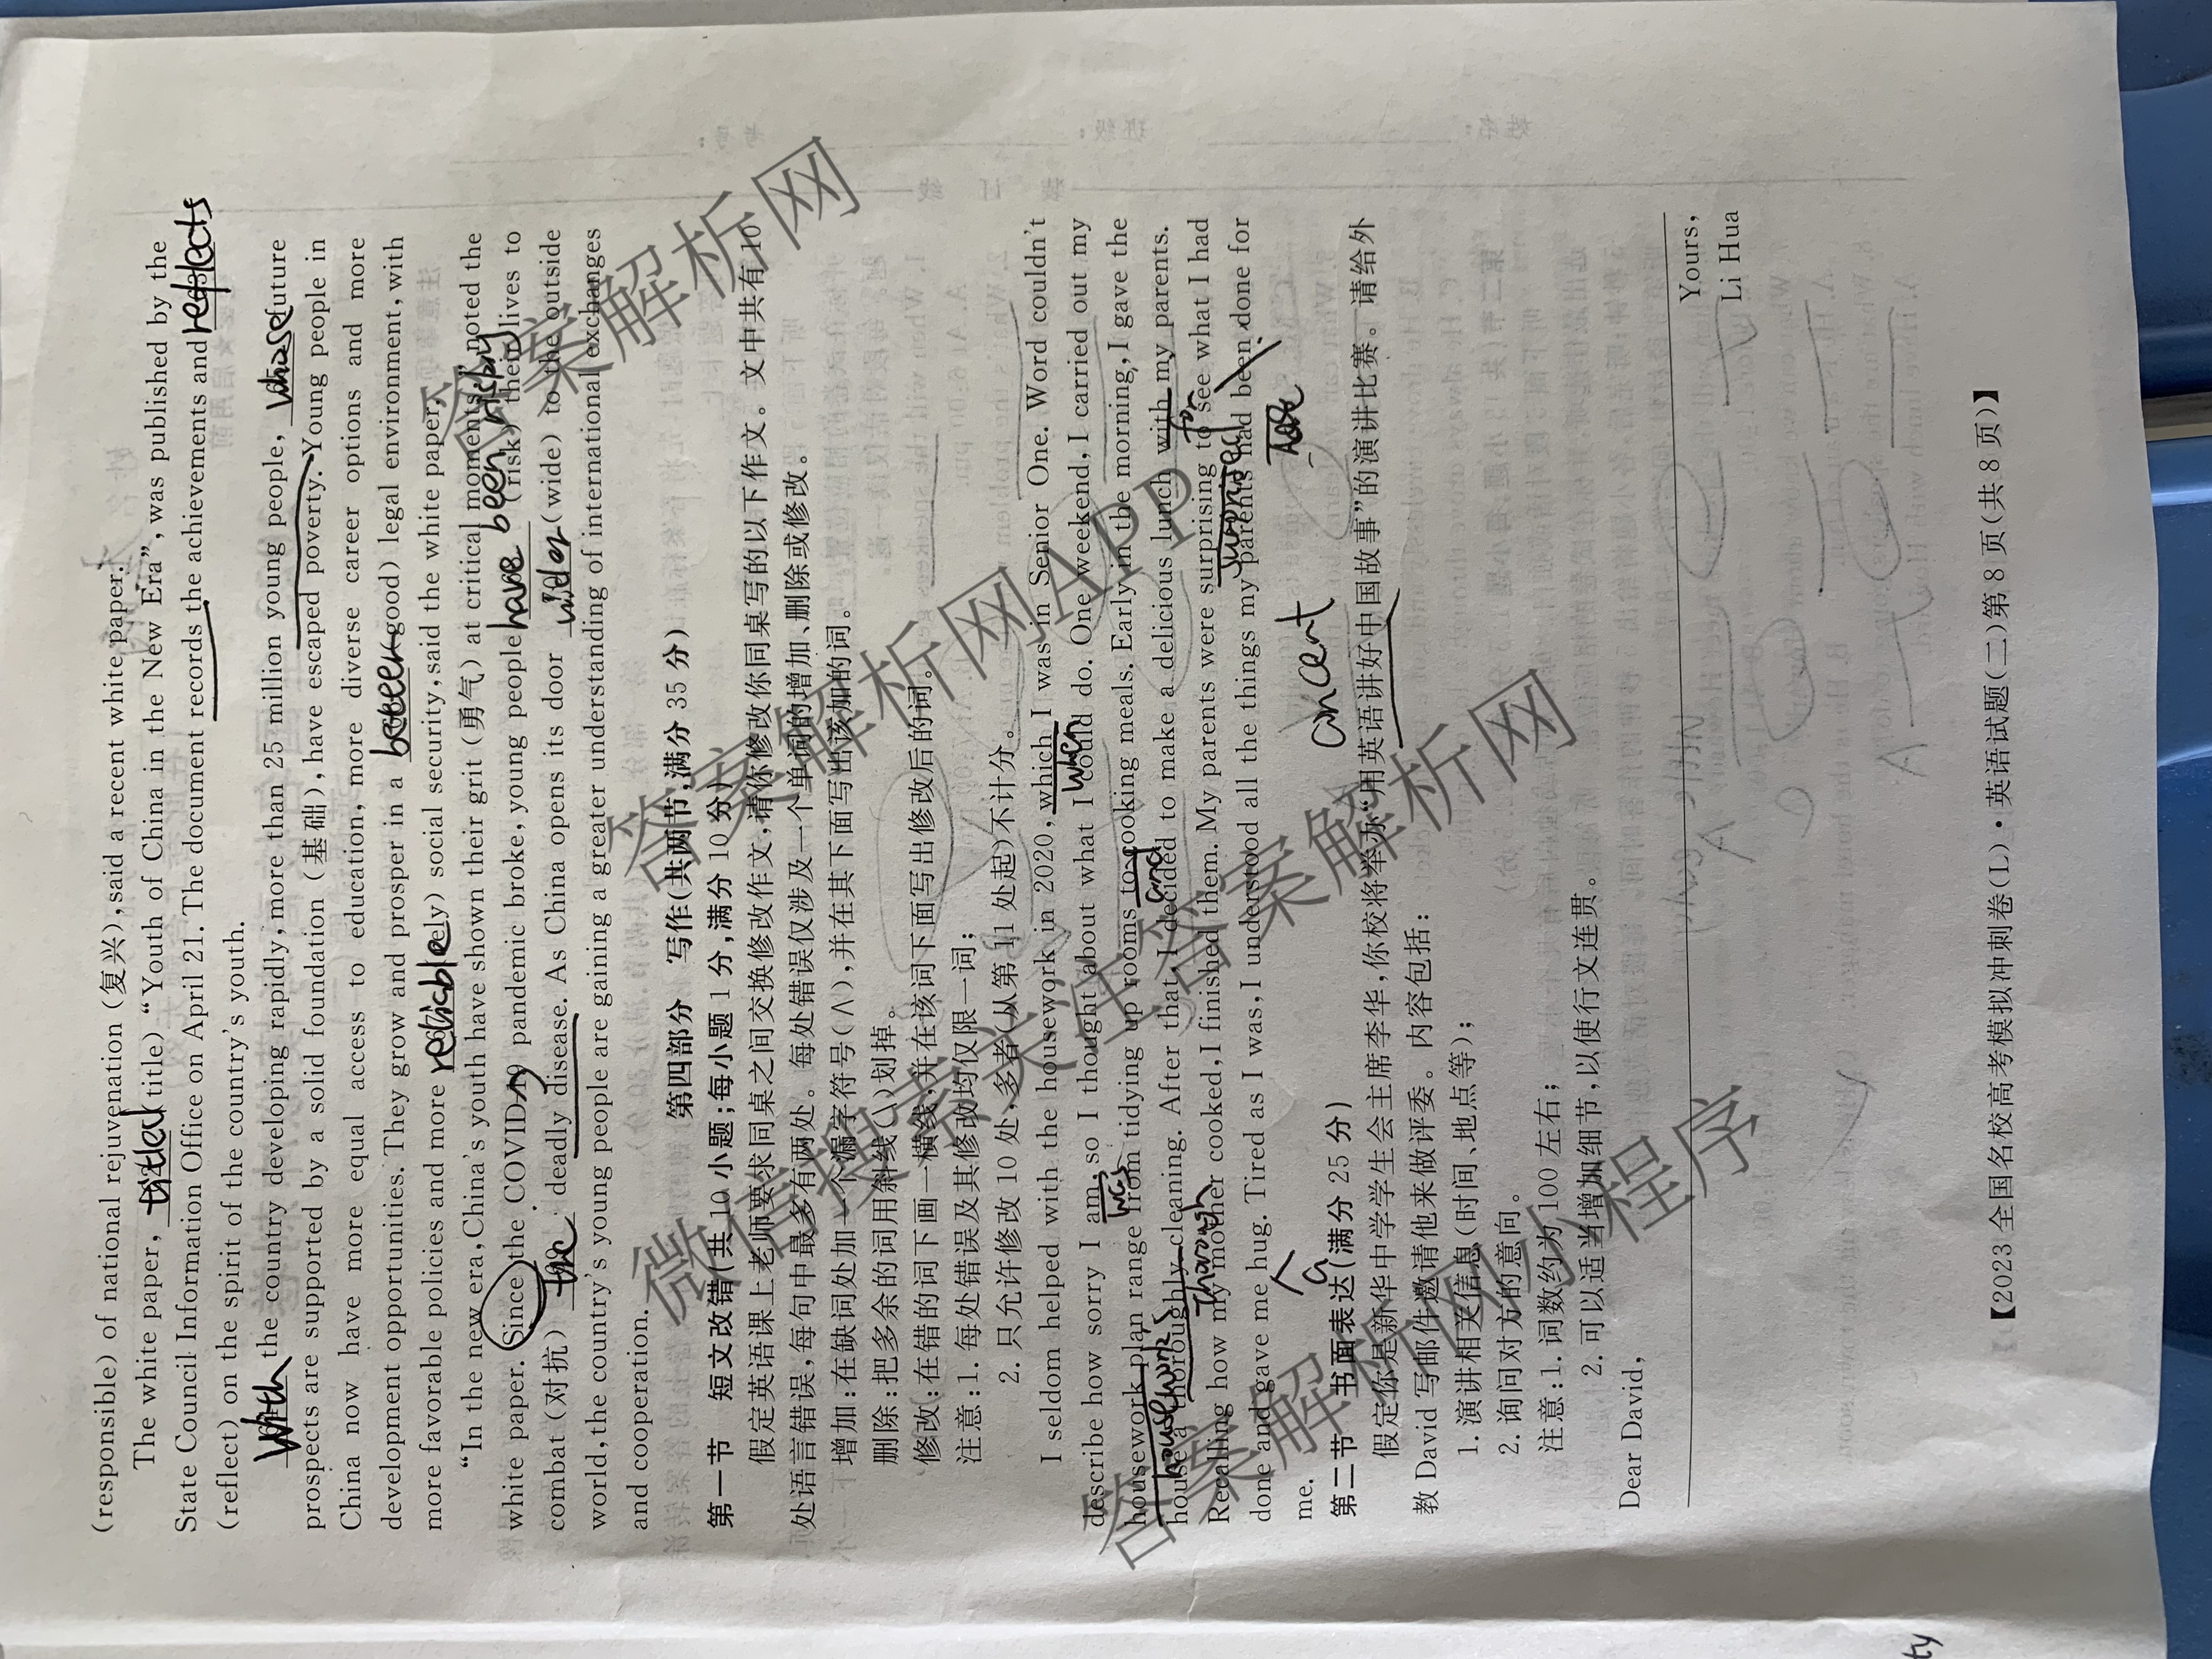 (responsible) of national rejuvenation (复兴), said a recent white paper.
The white paper, titled (title) “Youth of China in the New Era”, was published by the
State Council Information Office on April 21. The document records the achievements and reflects
(reflect) on the spirit of the country's youth.
With the country developing rapidly, more than 25 million young people, whose future
prospects are supported by a solid foundation (基础), have escaped poverty. Young people in
China now have more equal access to education, more diverse career options and more
development opportunities. They grow and prosper in a (good) legal environment, with
more favorable policies and more reliable (rely) social security, said the white paper.
“In the new era, China's youth have shown their grit (勇气) at critical moments,” noted the
white paper. Since the COVID-19 pandemic broke, young people have been (risk) their lives to
combat (对抗) the deadly disease. As China opens its door wider (wide) to the outside
world, the country's young people are gaining a greater understanding of international exchanges
and cooperation.
第四部分 写作(共两节,满分 35 分)
第一节 短文改错(共 10 小题;每小题 1 分,满分 10 分)
假定英语课上老师要求同桌之间交换修改作文,请你修改你同桌写的以下作文。文中共有 10
处语言错误,每句中最多有两处。每处错误仅涉及一个单词的增加、删除或修改。
增加:在缺词处加一个漏字符号(∧),并在其下面写出该加的词。
删除:把多余的词用斜线(\)划掉。
修改:在错的词下画一横线,并在该词下面写出修改后的词。
注意:1. 每处错误及其修改均仅限一词;
2. 只允许修改 10 处,多者(从第 11 处起)不计分。
I seldom helped with the housework in 2020, which I was in Senior One. Word couldn't
when
describe how sorry I am, so I thought about what I could do. One weekend, I carried out my
was
housework plan range from tidying up rooms to cooking meals. Early in the morning, I gave the
and
house a thoroughly cleaning. After that, I decided to make a delicious lunch with my parents.
for
Recalling how my mother cooked, I finished them. My parents were surprising to see what I had
surprised
done and gave me hug. Tired as I was, I understood all the things my parents had been done for
a
me.
第二节 书面表达(满分 25 分)
假定你是新华中学学生会主席李华,你校将举办“用英语讲好中国故事”的演讲比赛。请给外
教 David 写邮件邀请他来做评委。内容包括:
1. 演讲相关信息(时间、地点等);
2. 询问对方的意向。
注意:1. 词数约为 100 左右;
2. 可以适当增加细节,以使行文连贯。
Dear David,
Yours,
Li Hua
【2023 全国名校高考模拟冲刺卷(L)·英语试题(二)第 8 页(共 8 页)】
答案解析网
答案解析网APP
微信搜索关注答案解析网
答案解析网小程序
ty